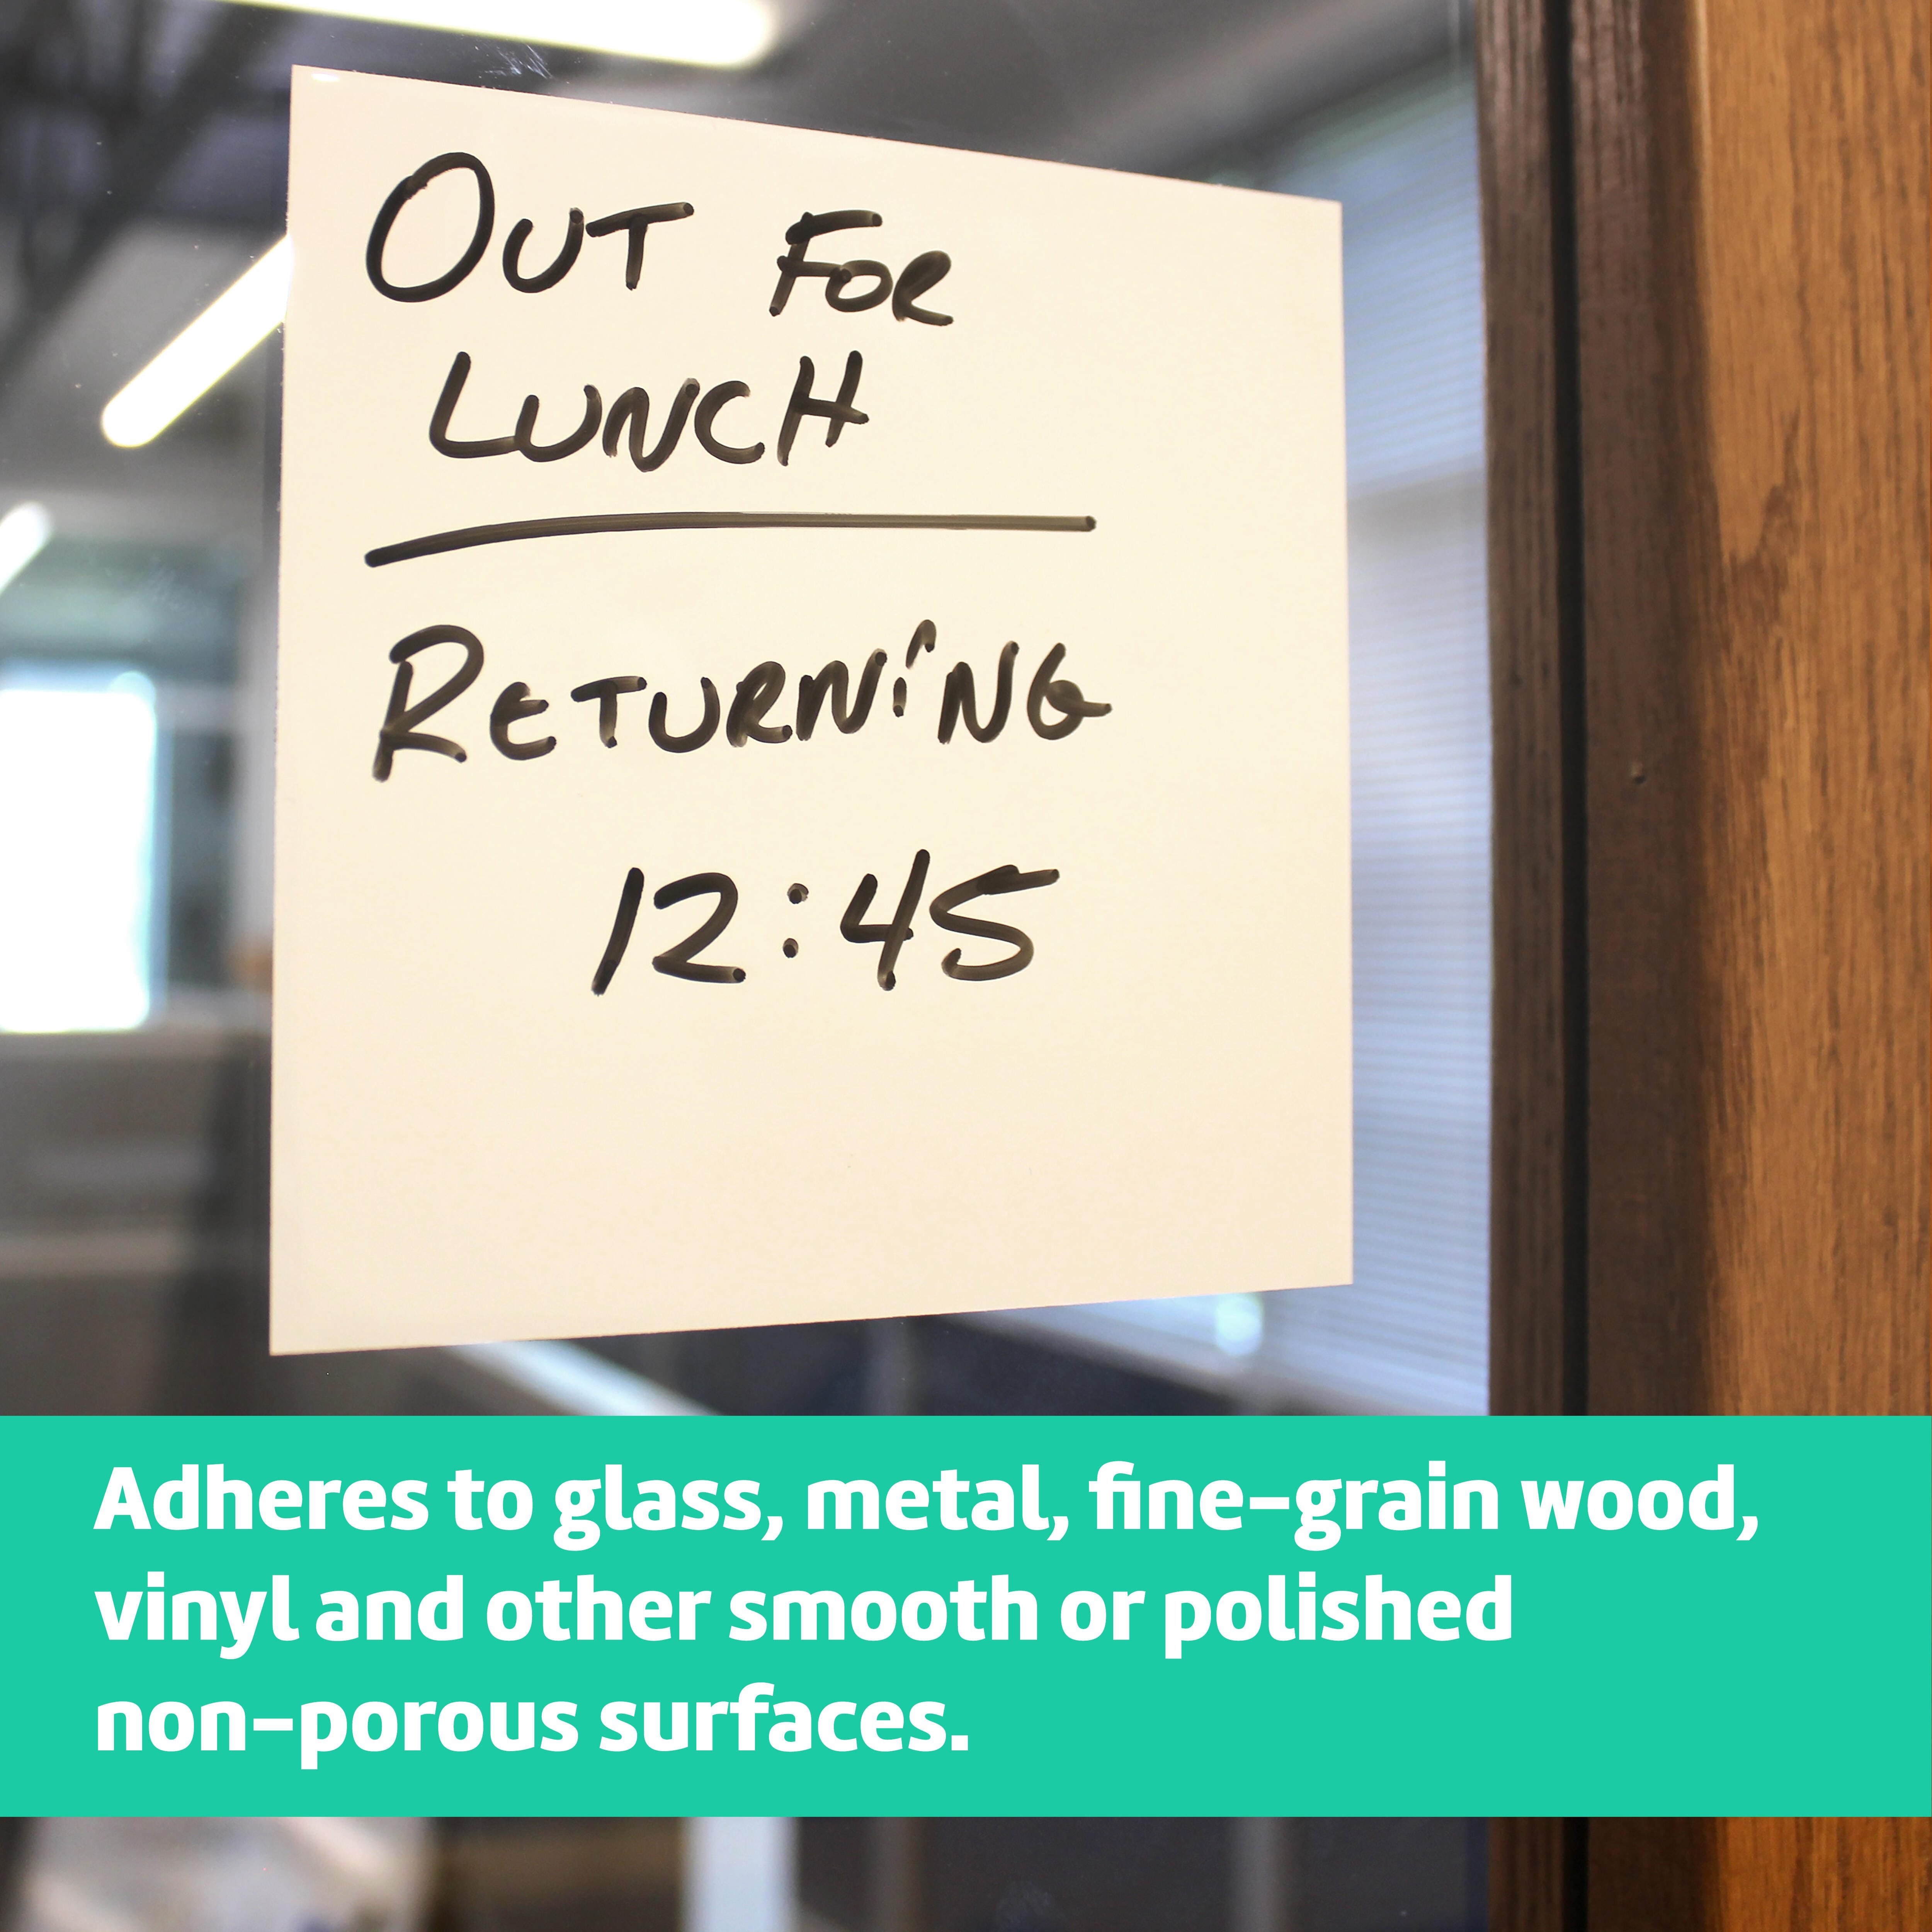 OUT FOR
LUNCH
RETURNiNG
12:45
Adheres to glass, metal, fine-grain wood,
vinyl and other smooth or polished
non-porous surfaces.